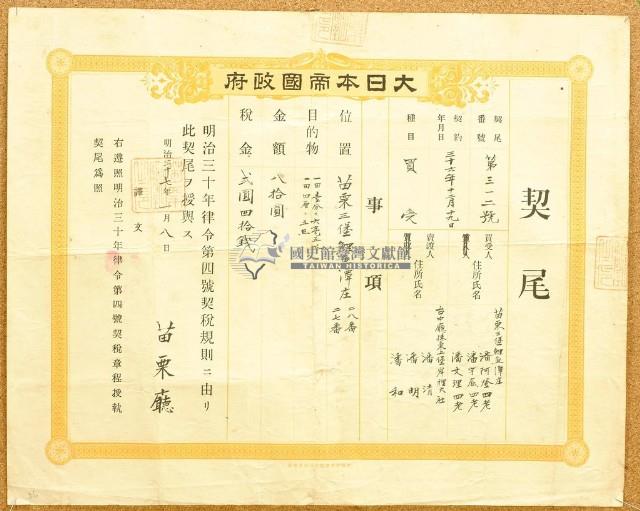 大日本帝國政府
契尾
契尾番號
第三一二號
契約年月日
三十六年十二月十九日
種目
買受
買受人住所氏名
苗栗三堡鯉魚潭庄
潘阿登四老
潘文理四老
賣渡人住所氏名
台中廳揀東上堡岸裡大社
潘清
潘明
潘和
事項
位置
苗栗三堡鯉魚潭庄
二八番
二七番
目的物
金額
八拾圓
稅金
弐圓四拾銭
明治三十年律令第四號契稅規則ニ由リ
此契尾ヲ授與ス
明治三十七年一月八日
苗栗廳
譯文
右遵照明治三十年律令第四號契稅章程授執
契尾爲照
國史館臺灣文獻館
TAIWAN HISTORICA